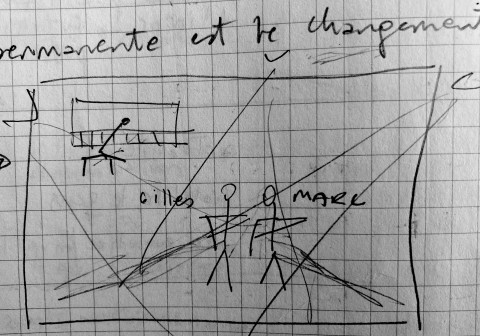 permanente est le changement
Gilles MARC